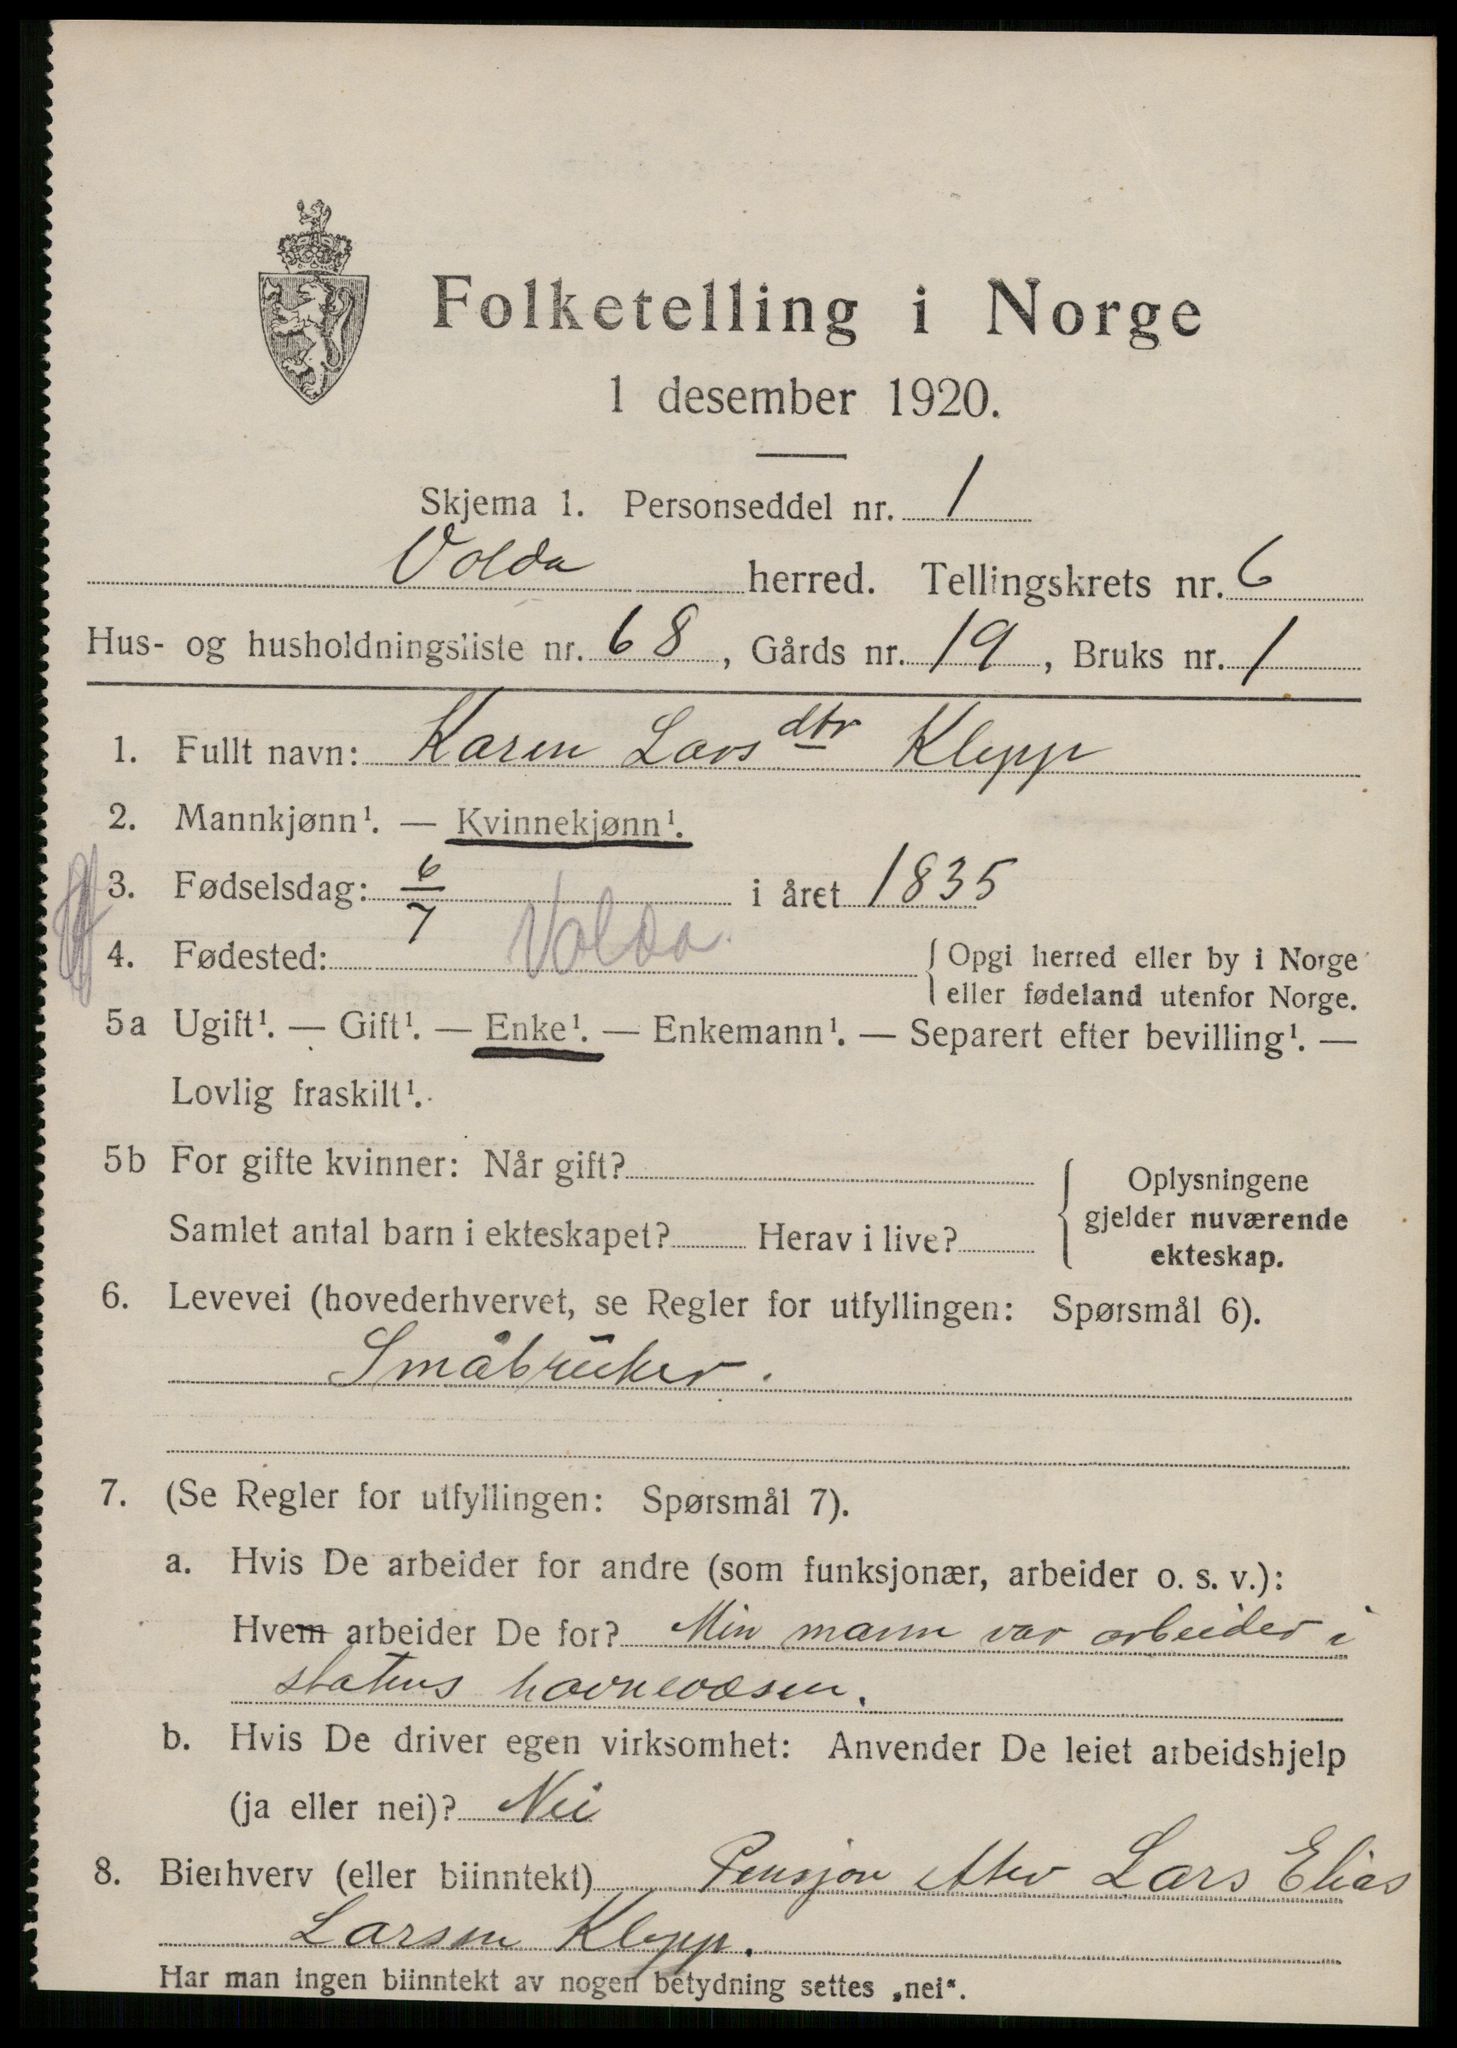 Folketelling i Norge
1 desember 1920.
Skjema 1. Personseddel nr. 1
Volda herred. Tellingskrets nr. 6
Hus- og husholdningsliste nr. 68, Gårds nr. 19, Bruks nr. 1
1. Fullt navn: Karen Larsdtr Klepp
2. Mannkjønn¹. — Kvinnekjønn¹.
3. Fødselsdag: 6/7 i året 1835
4. Fødested: Volda. { Opgi herred eller by i Norge
eller fødeland utenfor Norge.
5a Ugift¹. — Gift¹. — Enke¹. — Enkemann¹. — Separert efter bevilling¹. —
Lovlig fraskilt¹.
5b For gifte kvinner: Når gift?
Samlet antal barn i ekteskapet? Herav i live?
{ Oplysningene
gjelder nuværende
ekteskap.
6. Levevei (hovederhvervet, se Regler for utfyllingen: Spørsmål 6).
Småbruker.
7. (Se Regler for utfyllingen: Spørsmål 7).
a. Hvis De arbeider for andre (som funksjonær, arbeider o. s. v.):
Hvem arbeider De for? Min mann var arbeider i
statens havnevæsen.
b. Hvis De driver egen virksomhet: Anvender De leiet arbeidshjelp
(ja eller nei)? Nei
8. Bierhverv (eller biinntekt) Pensjon etter Lars Elias
Larsen Klepp.
Har man ingen biinntekt av nogen betydning settes „nei“.